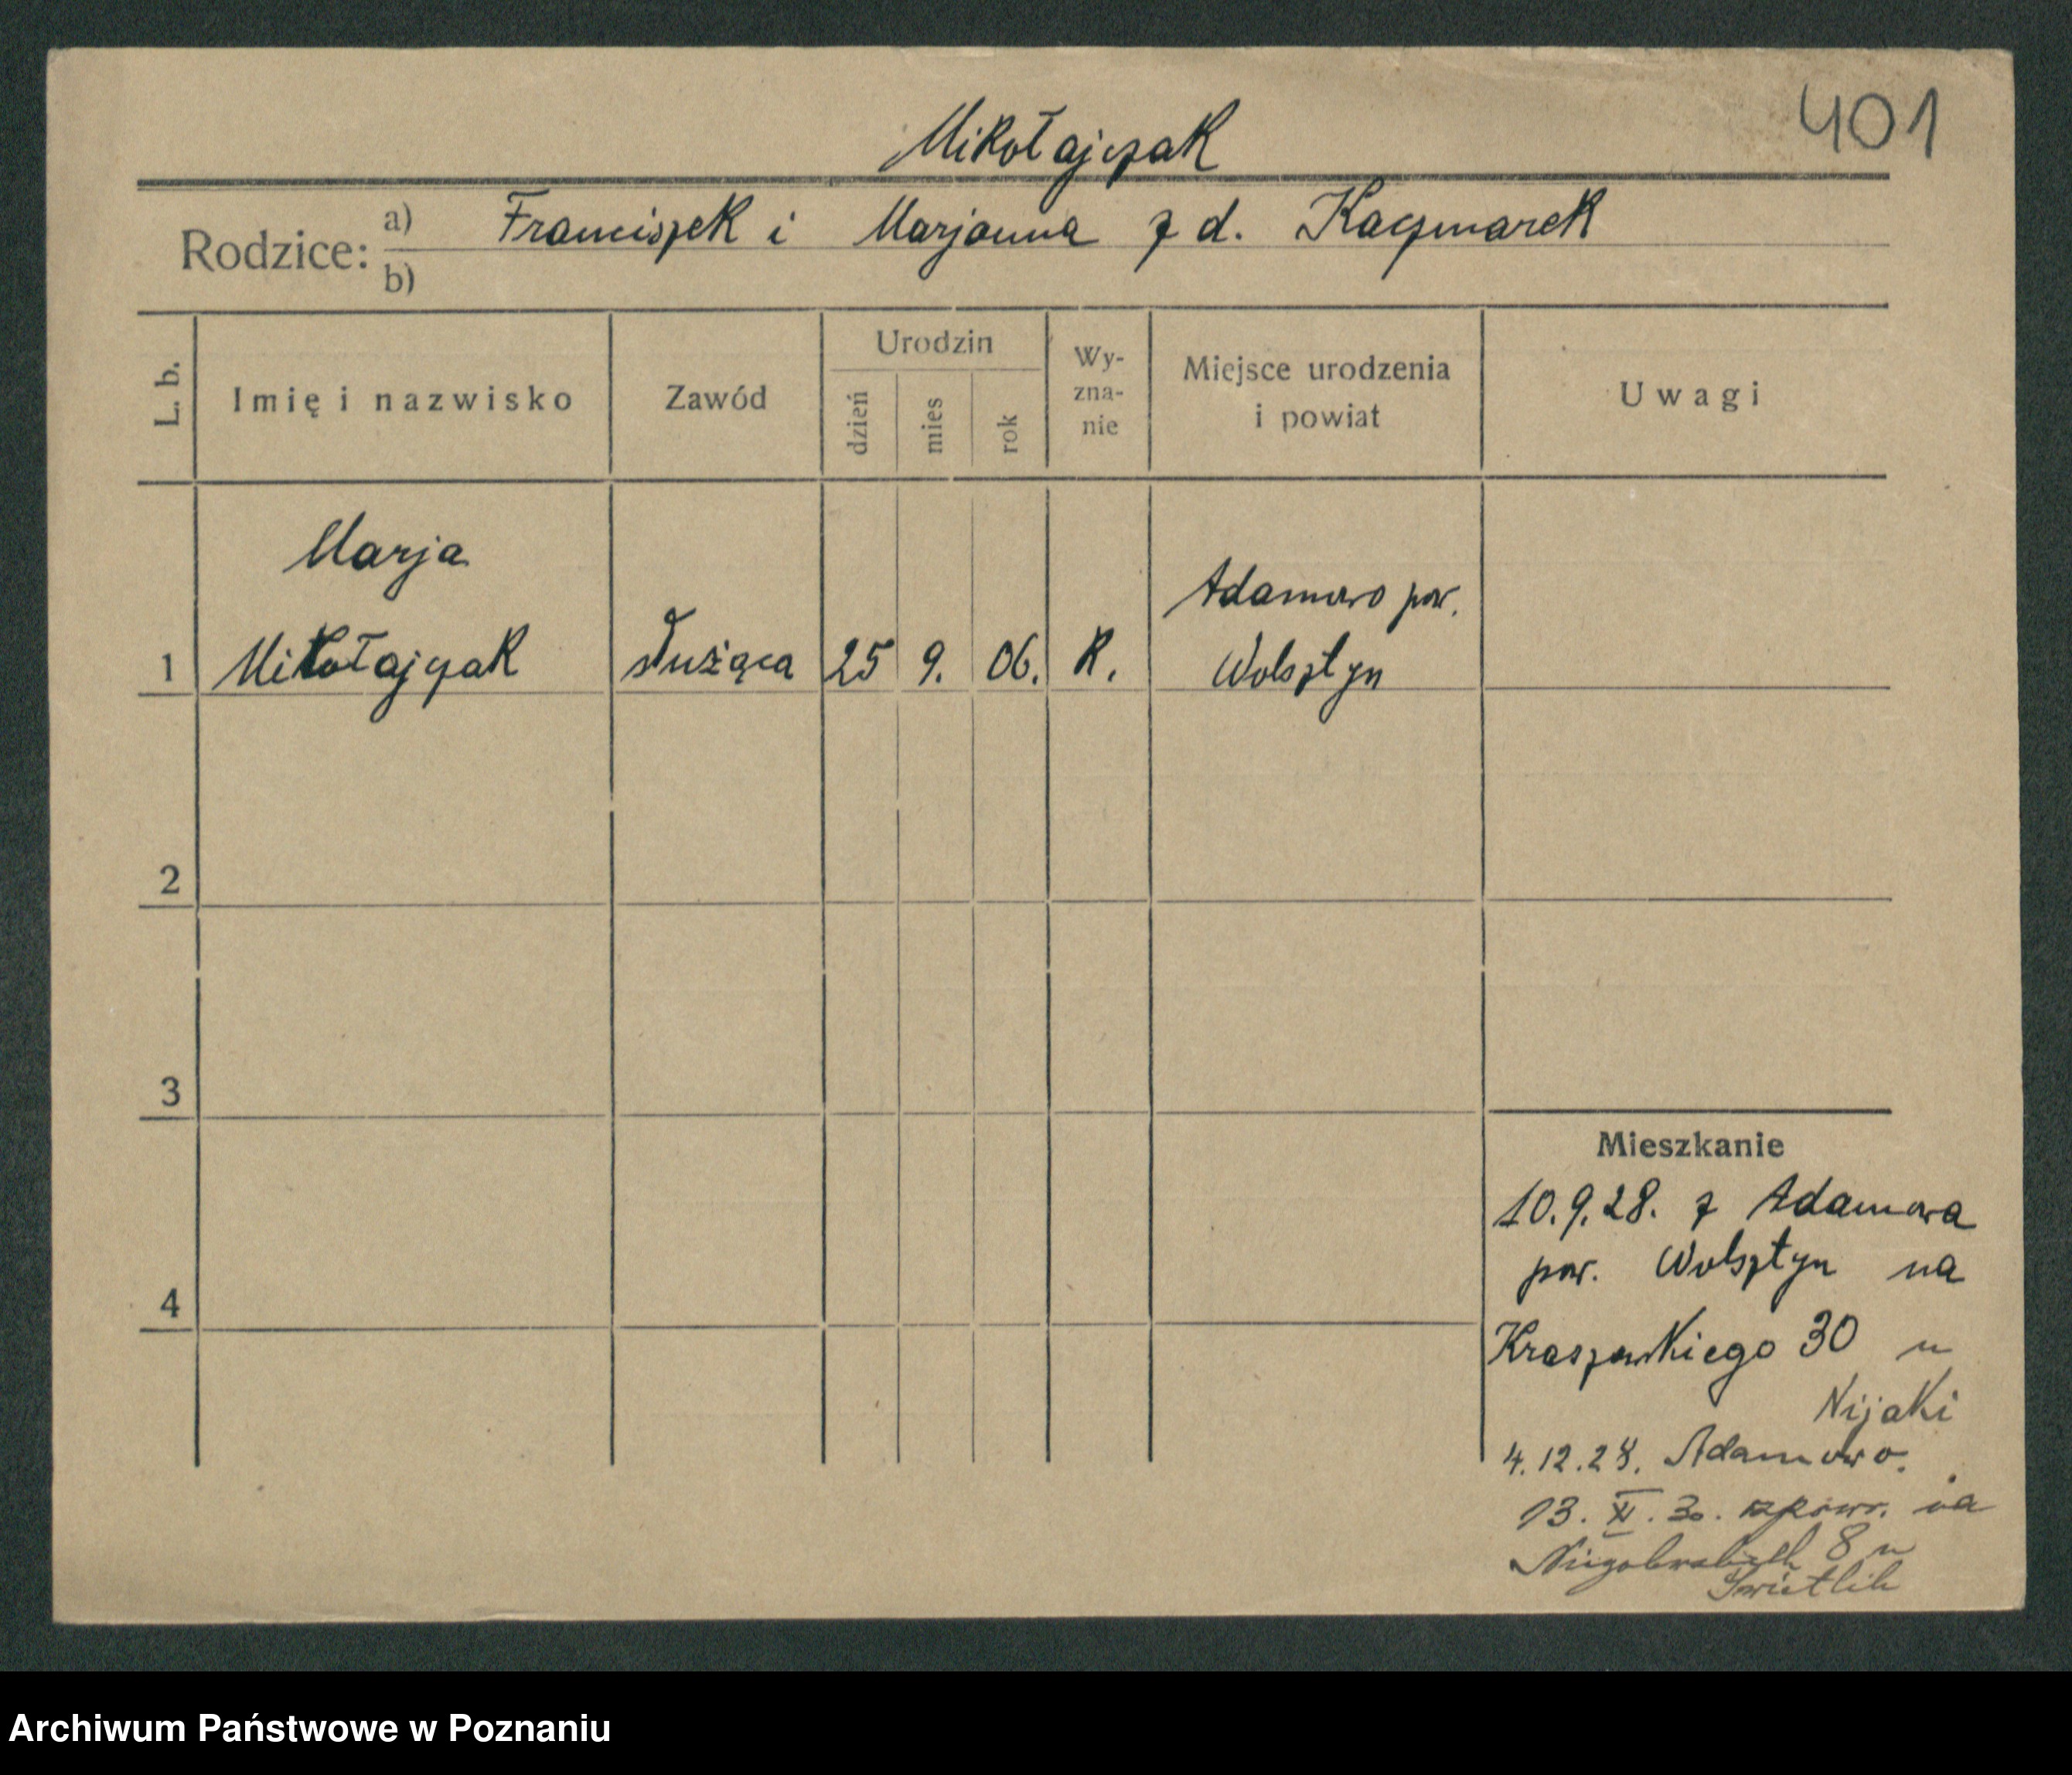 401
Mikołajczak
Rodzice: a) Franciszek i Marjanna z d. Kaczmarek
b)
L. b. Imię i nazwisko Zawód Urodzin dzień mies rok Wy-zna-nie Miejsce urodzenia i powiat Uwagi
Marja
Adamowo pow.
1 Mikołajczak służąca 25 9. 06. K. Wolsztyn
2
3
Mieszkanie
10.9.28. z Adamowa
pow. Wolsztyn na
4
Kraszewskiego 30 u
Nijaki
4.12.28. Adamowo.
13. XI. 30. na
8 u
Świetlik
Archiwum Państwowe w Poznaniu